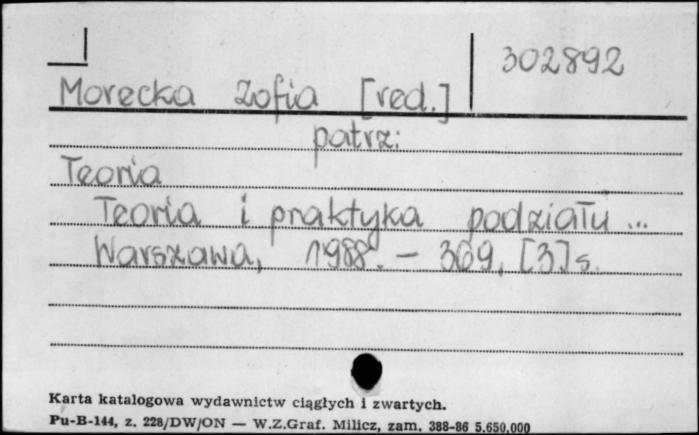 302892
Morecka Zofia [red.]
patrz:
Teoria
Teoria i praktyka podziału ...
Warszawa, 1988. – 369, [3] s.
Karta katalogowa wydawnictw ciągłych i zwartych.
Pu-B-144, z. 228/DW/ON — W.Z.Graf. Milicz, zam. 388-86 5.650.000